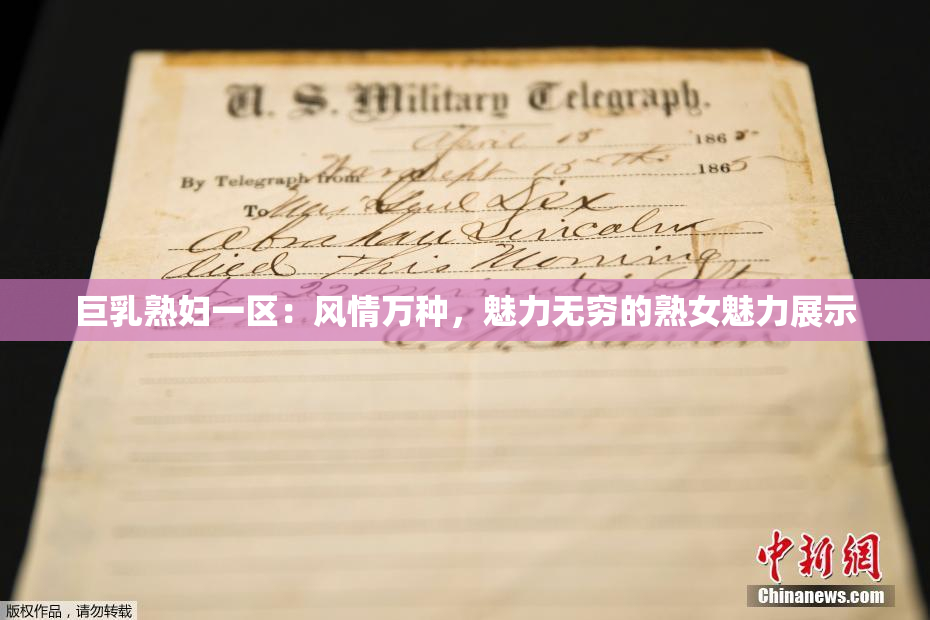 U. S. Military Telegraph.
April 15 1865
By Telegraph from War Dept 15th 1865
To Maj Genl Dix
Abraham Lincoln
died This Morning
at 22 minutes after
巨乳熟妇一区：风情万种，魅力无穷的熟女魅力展示
E. M. Stanton
中新网
Chinanews.com
版权作品，请勿转载